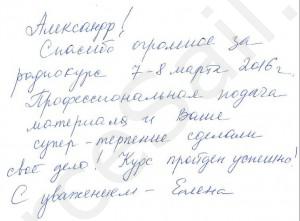 Александр!
Спасибо огромное за
радиокурс 7-8 марта 2016 г.
Профессиональная подача
материала и Ваше
супер-терпение сделали
своё дело! Курс пройден успешно!
С уважением - Елена